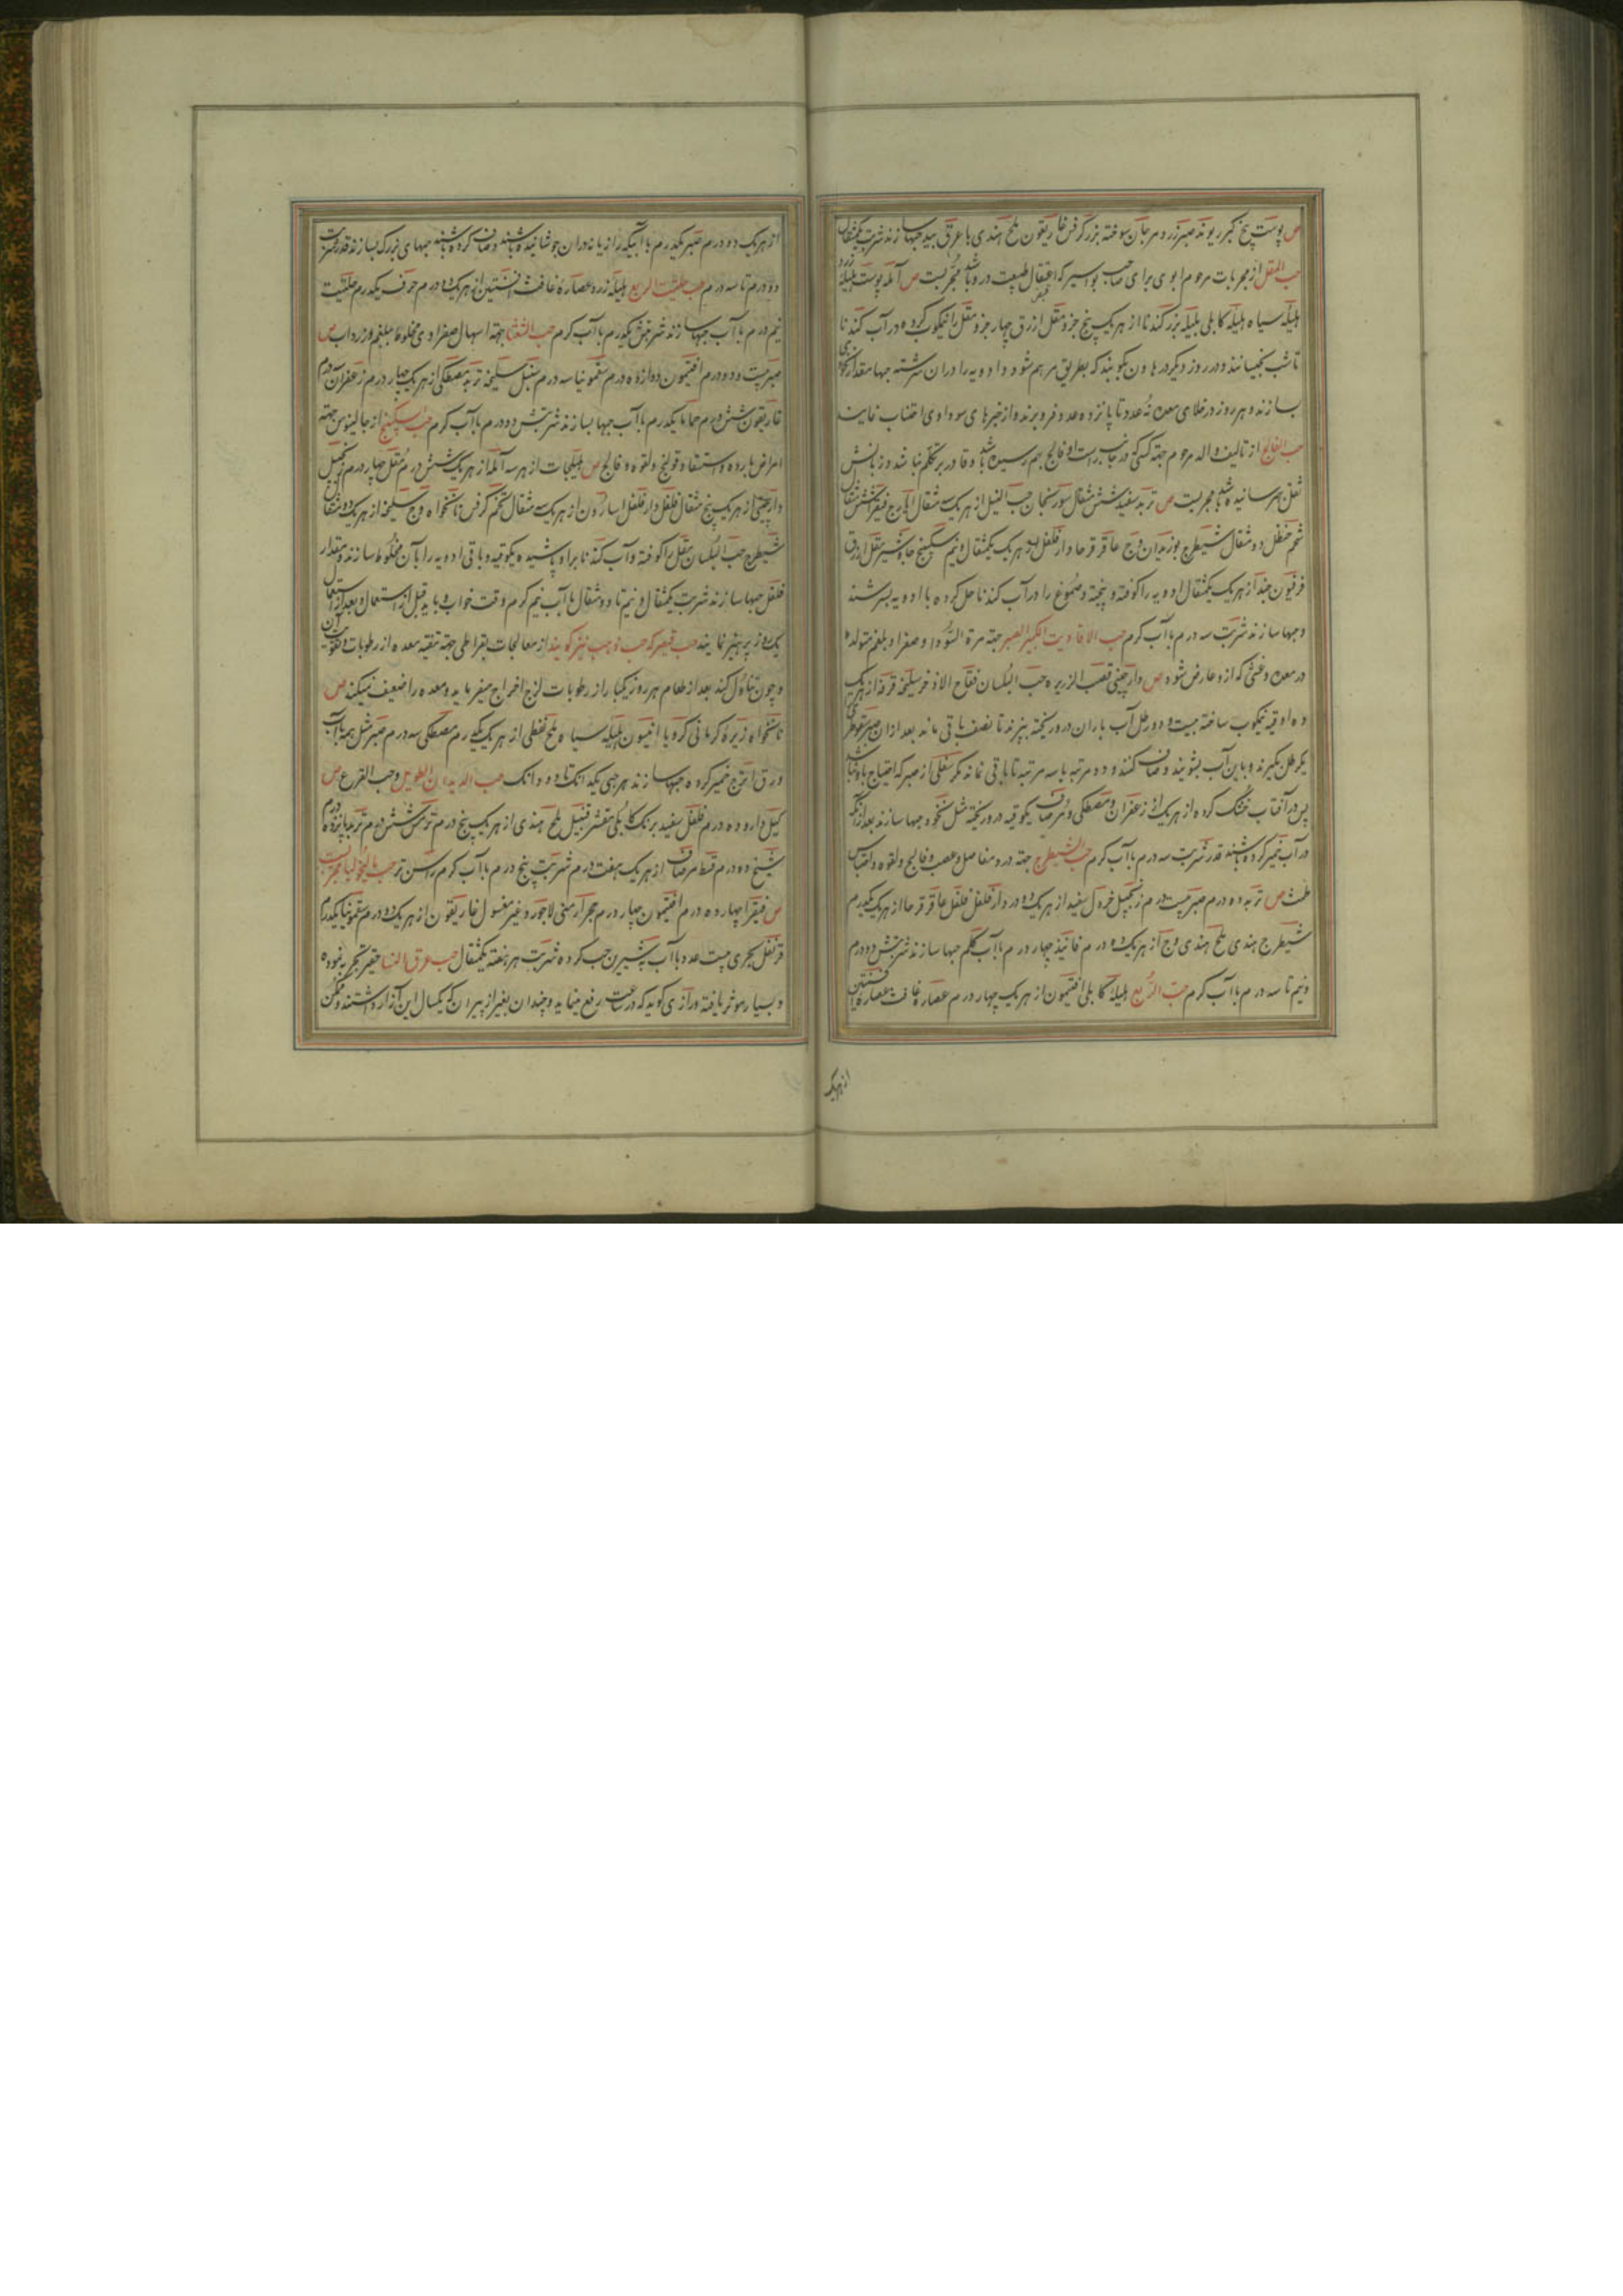 ص پوست بیخ کبر ریوند صبر زرد مرجان سوخته بزر کرفس غاریقون ملح هندی با عرق بید حبها سازند شربت یکمثقال
حب المقل از مجربات مرحوم ابوی برای صاحب بواسیر که اعتقال طبیعت درو باشد مجربست ص آمله پوست هلیله زرد
هلیله سیاه هلیله کابلی بلیله بزر کندنا از هر یک پنج جزو مقل ازرق چهار جزو مقل را نیمکوب کرده در آب کندنا
تا شب بخیسانند و در روز دیگر در هاون بکوبند که بطریق مرهم شود و ادویه را در ان سرشته حبها مقدار نخودی
بسازند و هر روز در خلای معده نه عدد تا پانزده عدد فرو برند و از خبزهای سوداوی اجتناب نمایند
حب الفالج از تالیف والد مرحوم جهة کسی که در جانب راست او فالج بهم رسیده باشد و قادر بر تکلم نباشد و زبانش
ثقل بهم رسانیده باشد مجربست ص تربد سفید شش مثقال سورنجان حب النیل از هر یک سه مثقال ایارج فیقرا شش مثقال
شحم حنظل دو مثقال شیطرج بوزیدان وج عاقرقرحا دارفلفل از هر یک یکمثقال و نیم سکبینج جاوشیر مقل ازرق
فرفیون جند از هر یک یکمثقال ادویه را کوفته و بیخته و صموغ را در آب کندنا حل کرده با ادویه بسرشند
و حبها سازند شربت سه درم با آب کرم حب الافاویه الکبیر الصبر جهة مرة السوداء و صفرا و بلغم متولده
در معده و غشی که ازو عارض شود ص دارچینی قصب الزریره حب البلسان فقاح الاذخر سلیخه قرفه از هر یک
ده اوقیه نیمکوب ساخته بیست و دو رطل آب باران درو ریخته بپزند تا نصف باقی ماند بعد از ان صبر سقوطری
یکرطل بگیرند و باین آب بشویند و صاف کنند و دو مرتبه یا سه مرتبه تا باقی نماند مکر ثفلی از صبر که احتیاج باو نباشد
پس در آفتاب خشک کرده از هر یک از زعفران و مصطکی و مر صاف یکوقیه درو ریخته مثل نخود حبها سازند بعد از آنکه
در آب خمیر کرده باشند قدر شربت سه درم با آب کرم حب الشیطرج جهة درد مفاصل و عصب و فالج و لقوه و احتباس
طمث ص تربد ده درم صبر بیست درم زنجبیل خردل سفید از هر یک ده درم دارفلفل فلفل عاقرقرحا از هر یک یکدرم
شیطرج هندی ملح هندی وج از هر یک ده درم فانیذ چهار درم با آب کلم حبها سازند شربتش دو درم
و نیم تا سه درم با آب کرم حب الربع هلیله کابلی افتیمون از هر یک چهار درم عصاره غافث عصاره افسنتین
از هر یک
از هر یک دو درم صبر یکدرم با آبیکه رازیانه در ان جوشانیده باشند و صاف کرده باشند حبهای بزرک بسازند قدر شربت
دو درم تا سه درم حب حلتیت الربع هلیله زرد عصاره غافث افسنتین از هر یک ده درم حرف یکدرم حلتیت
نیم درم با آب حبها سازند شربتش یکدرم با آب کرم حب الشفا جهة اسهال صفراوی مخلوط ببلغم و زرداب ص
صبر بیست و دو درم افتیمون دوازده درم سقمونیا سه درم سنبل سلیخه تربد مصطکی از هر یک چهار درم زعفران درم
غاریقون شش درم حماما یکدرم با آب حبها بسازند شربتش دو درم با آب کرم حب سکبینج از جالینوس جهة
امراض بارده و استسقا و قولنج و لقوه و فالج ص هلیلجات از هر سه آمله از هر یک شش درم مقل چهار درم زنجبیل
دارچینی از هر یک پنج مثقال فلفل دارفلفل اسارون از هر یک سه مثقال تخم کرفس نانخواه وج سلیخه از هر یک دو مثقال
شیطرج حب البلسان مقل را کوفته و آب کندنا براو پاشیده یکوقیه و باقی ادویه را با آن مخلوط سازند و بمقدار
فلفل حبها سازند شربت یکمثقال و نیم تا دو مثقال با آب نیم کرم وقت خواب و باید قبل از استعمال و بعد از استعمال
یکروز پرهیز نمایند حب قیصر که حب نوجب نیز کویند از معالجات بقراطی جهة تنقیه معده از رطوبات و تقویت آن
و چون تناول کنند بعد از طعام هر روز یکبار از رطوبات لزج اخراج میفرماید و معده را ضعیف نمیکند ص
نانخواه زیره کرمانی کرویا انیسون هلیله سیاه ملح نفطی از هر یک یکدرم مصطکی سه درم صبر مثل همه با آب
ورق اترج خمیر کرده حبها سازند هر حبی یکدانک تا دو دانک حب الدیدان الطویل و حب القرع ص
کیل دارو ده درم فلفل سفید برنک کابلی مقشر قنبیل ملح هندی از هر یک پنج درم ترمس شش درم تربد پانزده درم
شیخ ده درم قسط مر صاف از هر یک هفت درم شربت پنج درم با آب کرم راسن تر حب مالیخولیا مجربست
ص فیقرا چهار ده درم افتیمون چهار درم حجر ارمنی لاجورد غیر مغسول غاریقون از هر یک ده درم سقمونیا یکدرم
قرنفل بحری بیست عدد با آب به شیرین حب کرده شربت هر هفته یکمثقال حب عرق النسا حقیر تجربه نموده
و بسیار موثر یافته و رازی کوید که در ساعت رفع مینماید و چندان بغیر از پیران که یکسال این آزار داشتند و ممکن